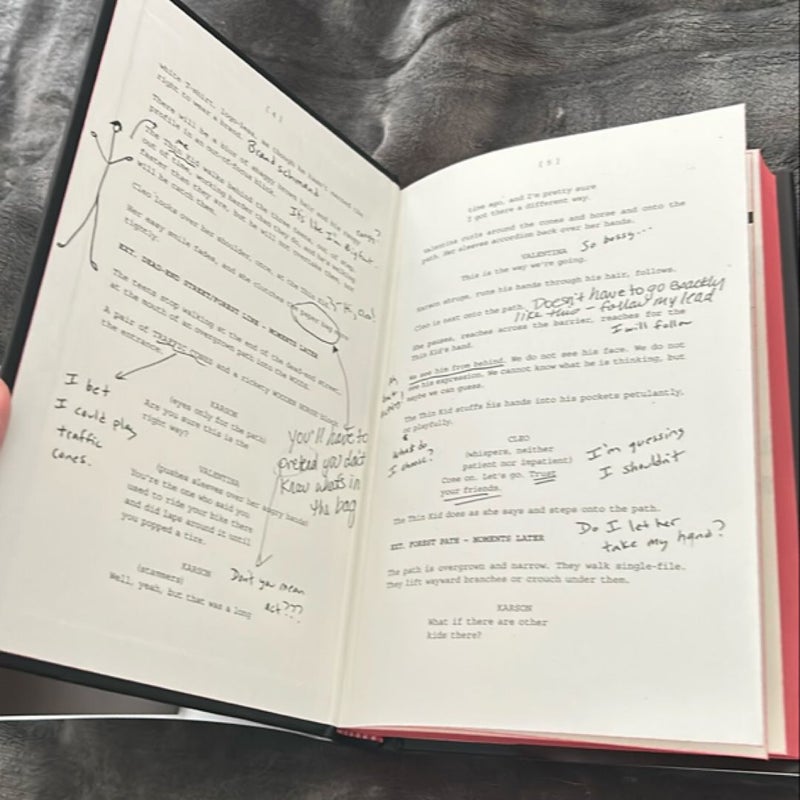 [4]
white T-shirt, logo-less, as though he hasn't earned the
right to wear a brand.
Brand schmand
There will be a blur of shaggy brown hair and his
profile in an out-of-focus blink.
me
The Thin Kid walks behind the three teens, out of step,
out of time, working harder than they do, and he's walking
faster than they are, but he will not overtake them, nor
will he catch them.
It's like I'm Bigfoot.
Cleo looks over her shoulder, once, at the Thin Kid.
Her easy smile fades, and she clutches the paper bag
tightly.
EXT. DEAD-END STREET/FOREST LINE - MOMENTS LATER
The teens stop walking at the end of the dead-end street,
at the mouth of an overgrown path into the woods.
A pair of TRAFFIC CONES and a rickety WOODEN HORSE block
the entrance.
I bet
I could play
traffic
cones.
KARSON
(eyes only for the path)
Are you sure this is the
right way?
you'll have to
pretend you don't
know what's in
the bag
VALENTINA
(pushes sleeves over her angry hands)
You're the one who said you
used to ride your bike there
and did laps around it until
you popped a tire.
KARSON
(stammers)
Well, yeah, but that was a long
Don't you mean
act???
[5]
time ago, and I'm pretty sure
I got there a different way.
Valentina cuts around the cones and horse and onto the
path. Her sleeves accordion back over her hands.
VALENTINA
So bossy...
This is the way we're going.
Karson shrugs, runs his hands through his hair, follows.
Cleo is next onto the path.
Doesn't have to go exactly
like this - follow my lead
She pauses, reaches across the barrier, reaches for the
Thin Kid's hand.
I will follow
We see him from behind. We do not see his face. We do not
see his expression. We cannot know what he is thinking, but
maybe we can guess.
The Thin Kid stuffs his hands into his pockets petulantly,
or playfully.
What do
I choose?
CLEO
(whispers, neither
patient nor impatient)
Come on. Let's go. Trust
your friends.
I'm guessing
I shouldn't
The Thin Kid does as she says and steps onto the path.
Do I let her
take my hand?
EXT. FOREST PATH - MOMENTS LATER
The path is overgrown and narrow. They walk single-file.
They lift wayward branches or crouch under them.
KARSON
What if there are other
kids there?